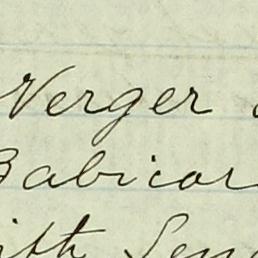 Verger
Babicor
ith Sen